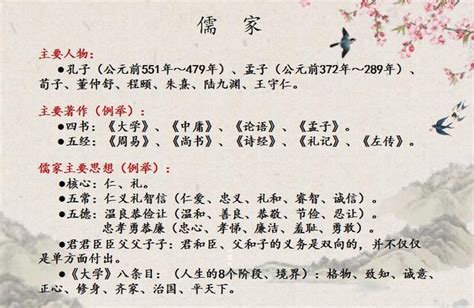 儒 家
主要人物:
●孔子（公元前551年～479年）、孟子（公元前372年～289年）、
荀子、董仲舒、程颐、朱熹、陆九渊、王守仁。
主要著作（例举）:
●四书:《大学》、《中庸》、《论语》、《孟子》。
●五经:《周易》、《尚书》、《诗经》、《礼记》、《左传》。
儒家主要思想（例举）:
●核心: 仁、礼。
●五常: 仁义礼智信（仁爱、忠义、礼和、睿智、诚信）。
●五德: 温良恭俭让（温和、善良、恭敬、节俭、忍让）。
忠孝勇恭廉（忠心、孝悌、廉洁、羞耻、勇敢）。
●君君臣臣父父子子: 君和臣、父和子的义务是双向的, 并不仅仅
是单方面付出。
●《大学》八条目:（人生的8个阶段、境界）: 格物、致知、诚意、
正心、修身、齐家、治国、平天下。